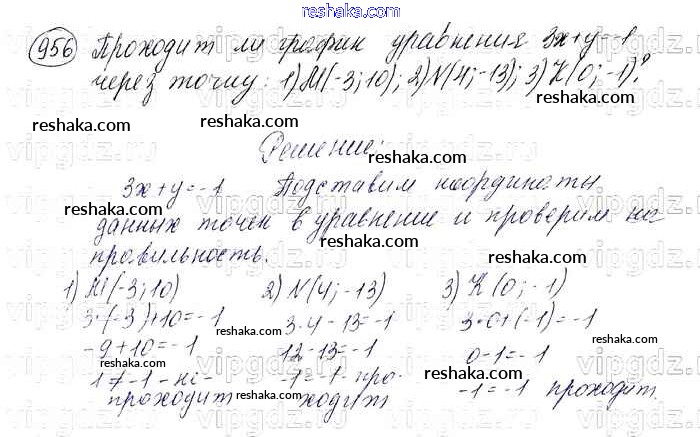 reshaka.com
956 Проходит ли график уравнения 3x+y=-1
через точку: 1) M(-3; 10); 2) N(4; -13); 3) K(0; -1)?
reshaka.com
reshaka.com
reshaka.com
Решение:
reshaka.com
3x+y=-1 Подставим координаты
reshaka.com
reshaka.com
данных точек в уравнение и проверим на
правильность.
reshaka.com
1) M(-3; 10) 2) N(4; -13) 3) K(0; -1)
3·(-3)+10=-1 3·4-13=-1 3·0+(-1)=-1
reshaka.com
reshaka.com
-9+10=-1 12-13=-1 0-1=-1
reshaka.com
reshaka.com
1≠-1 - не- -1=-1 - про- -1=-1 проходит
проходит ходит
reshaka.com
reshaka.com